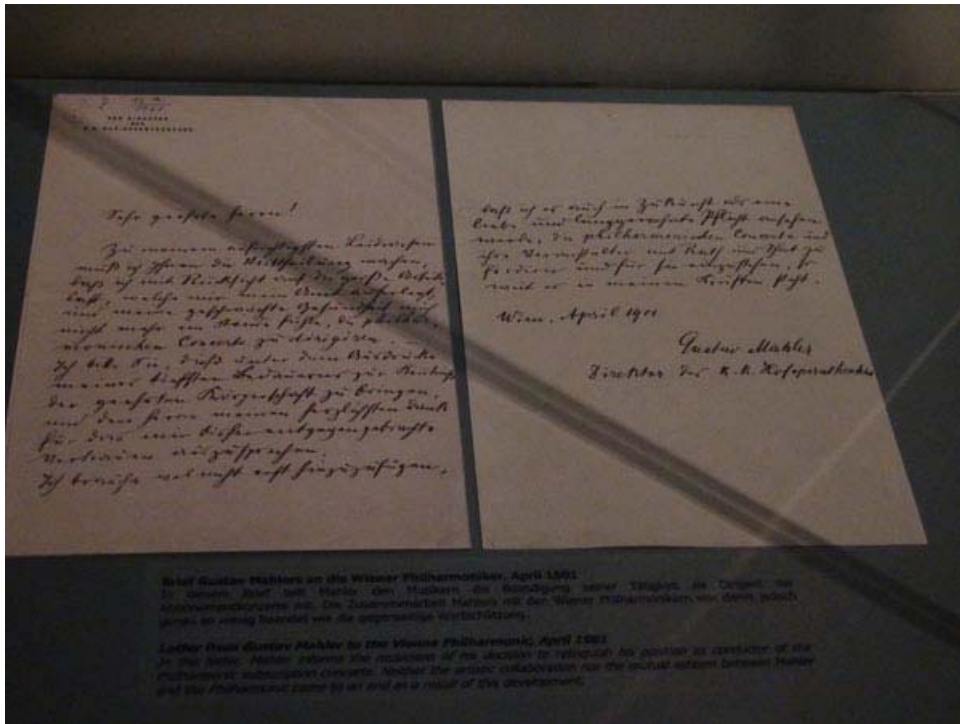 DER DIRECTOR
DES
K.K. HOF-OPERNTHEATERS
Sehr geehrte Herren!
Zu meinem aufrichtigsten Leidwesen
muß ich Ihnen die Mittheilung machen,
daß ich mit Rücksicht auf die große Arbeits-
last, welche mir mein Amt auferlegt,
und meine geschwächte Gesundheit mich
nicht mehr im Stande fühle, die philhar-
monischen Concerte zu dirigiren.
Ich bitte Sie, dieß unter dem Ausdrucke
meines tiefsten Bedauerns zur Kenntniß
der geehrten Körperschaft zu bringen,
und den Herren meinen herzlichsten Dank
für das mir bisher entgegengebrachte
Vertrauen auszusprechen.
Ich brauche wol nicht erst hinzuzufügen,
daß ich es auch in Zukunft als eine
liebe und langgewohnte Pflicht ansehen
werde, die philharmonischen Concerte und
ihre Veranstalter mit Rath und That zu
fördern und für sie einzustehen, so
weit es in meinen Kräften steht.
Wien, April 1901
Gustav Mahler
Direktor des K.K. Hofoperntheaters
Brief Gustav Mahlers an die Wiener Philharmoniker, April 1901
In diesem Brief teilt Mahler den Musikern die Beendigung seiner Tätigkeit als Dirigent der
Abonnementkonzerte mit. Die Zusammenarbeit Mahlers mit den Wiener Philharmonikern war damit jedoch
genau so wenig beendet wie die gegenseitige Wertschätzung.
Letter from Gustav Mahler to the Vienna Philharmonic, April 1901
In this letter, Mahler informs the musicians of his decision to relinquish his position as conductor of the
Philharmonic subscription concerts. Neither the artistic collaboration nor the mutual esteem between Mahler
and the Philharmonic came to an end as a result of this development.